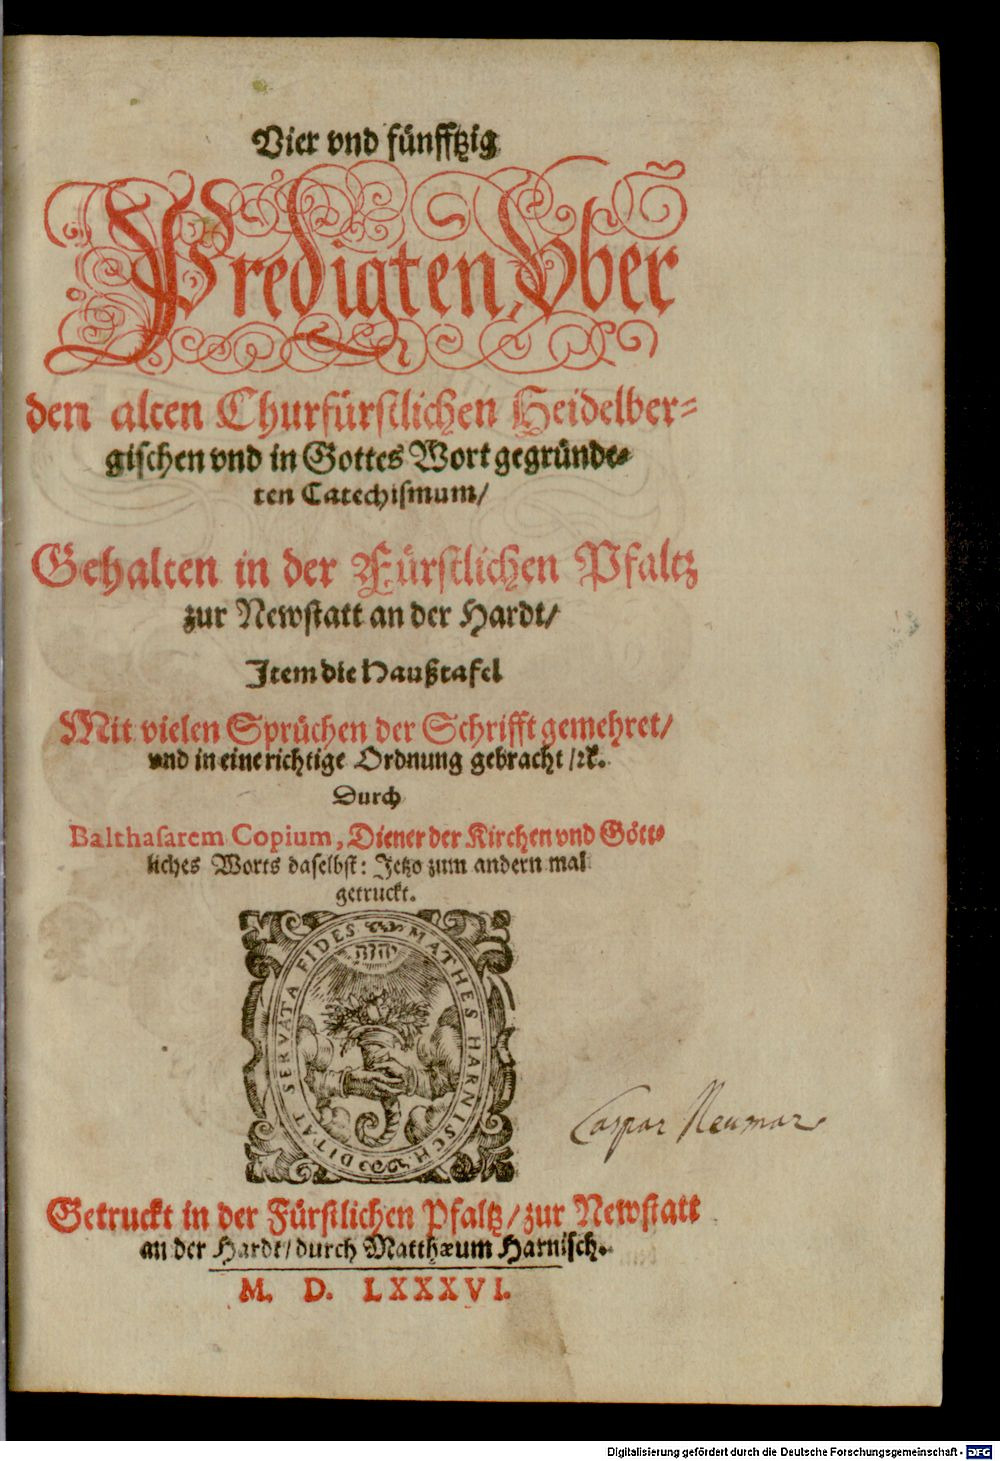 Vier vnd fünfftzig
Predigten, Vber
den alten Churfürstlichen Heidelber-
gischen vnd in Gottes Wort gegründe-
ten Catechismum/
Gehalten in der Fürstlichen Pfaltz
zur Newstatt an der Hardt/
Item die Haußtafel
Mit vielen Sprüchen der Schrifft gemehret/
vnd in eine richtige Ordnung gebracht/ꝛc.
Durch
Balthasarem Copium, Diener der Kirchen vnd Gött-
liches Worts daselbst: Jetzo zum andern mal
getruckt.
DITAT SERVATA FIDES MATHES HARNISCH.
יהוה
Caspar Neumar
Getruckt in der Fürstlichen Pfaltz/ zur Newstatt
an der Hardt/ durch Matthæum Harnisch.
M. D. LXXXVI.
Digitalisierung gefördert durch die Deutsche Forschungsgemeinschaft - DFG